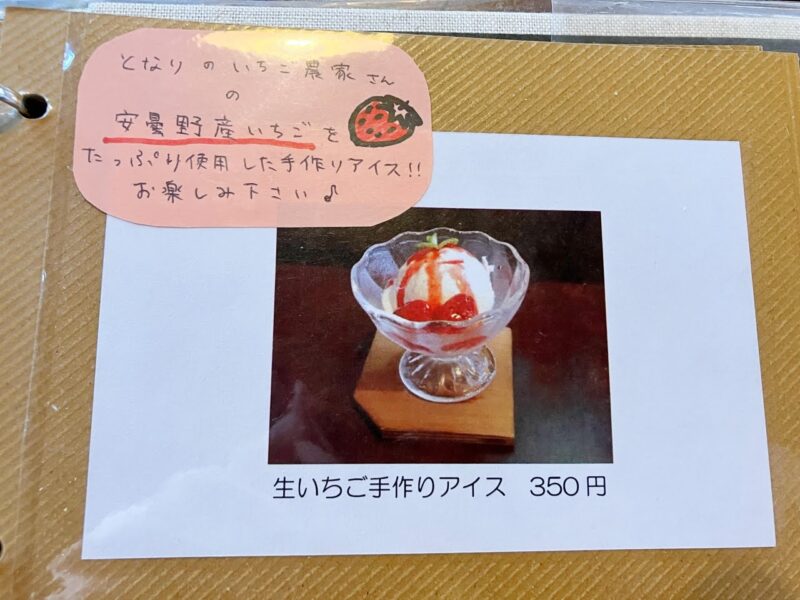 となりのいちご農家さん
の
安曇野産いちごを
たっぷり使用した手作りアイス!!
お楽しみ下さい♪
生いちご手作りアイス　350円